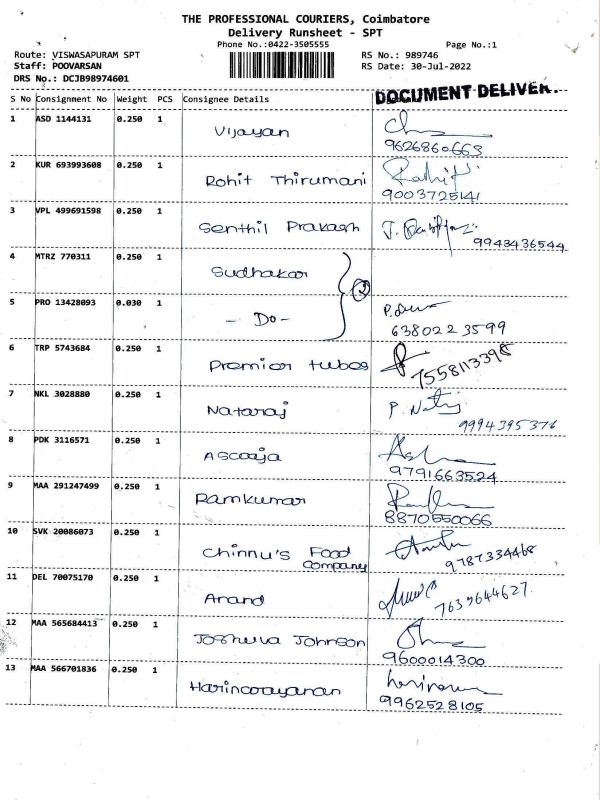 THE PROFESSIONAL COURIERS, Coimbatore
Delivery Runsheet - SPT
Phone No.:0422-3505555
Page No.:1
Route: VISWASAPURAM SPT
RS No.: 989746
Staff: POOVARSAN
RS Date: 30-Jul-2022
DRS No.: DCJB98974601
DOCUMENT DELIVER.
S No Consignment No Weight PCS Consignee Details
1 ASD 1144131 0.250 1 Vijayan
9626860663
2 KUR 693993608 0.250 1 Rohit Thirumani
9003725141
3 VPL 499691598 0.250 1 Senthil Prakash
9943436544
4 MTRZ 770311 0.250 1 Sudhakar
2
5 PRO 13428093 0.030 1 - Do -
6380223599
6 TRP 5743684 0.250 1 Premior tubes
7558113398
7 NKL 3028880 0.250 1 Nataraj
9994395376
8 PDK 3116571 0.250 1
9791663524
9 MAA 291247499 0.250 1 Ramkumar
8870550066
10 SVK 20086073 0.250 1 Chinnu's Food
Company
9787334468
11 DEL 70075170 0.250 1 Anand
7639644627
12 MAA 565684413 0.250 1 Joshuva Johnson
9600014300
13 MAA 566701836 0.250 1 Harinarayanan
9962528105